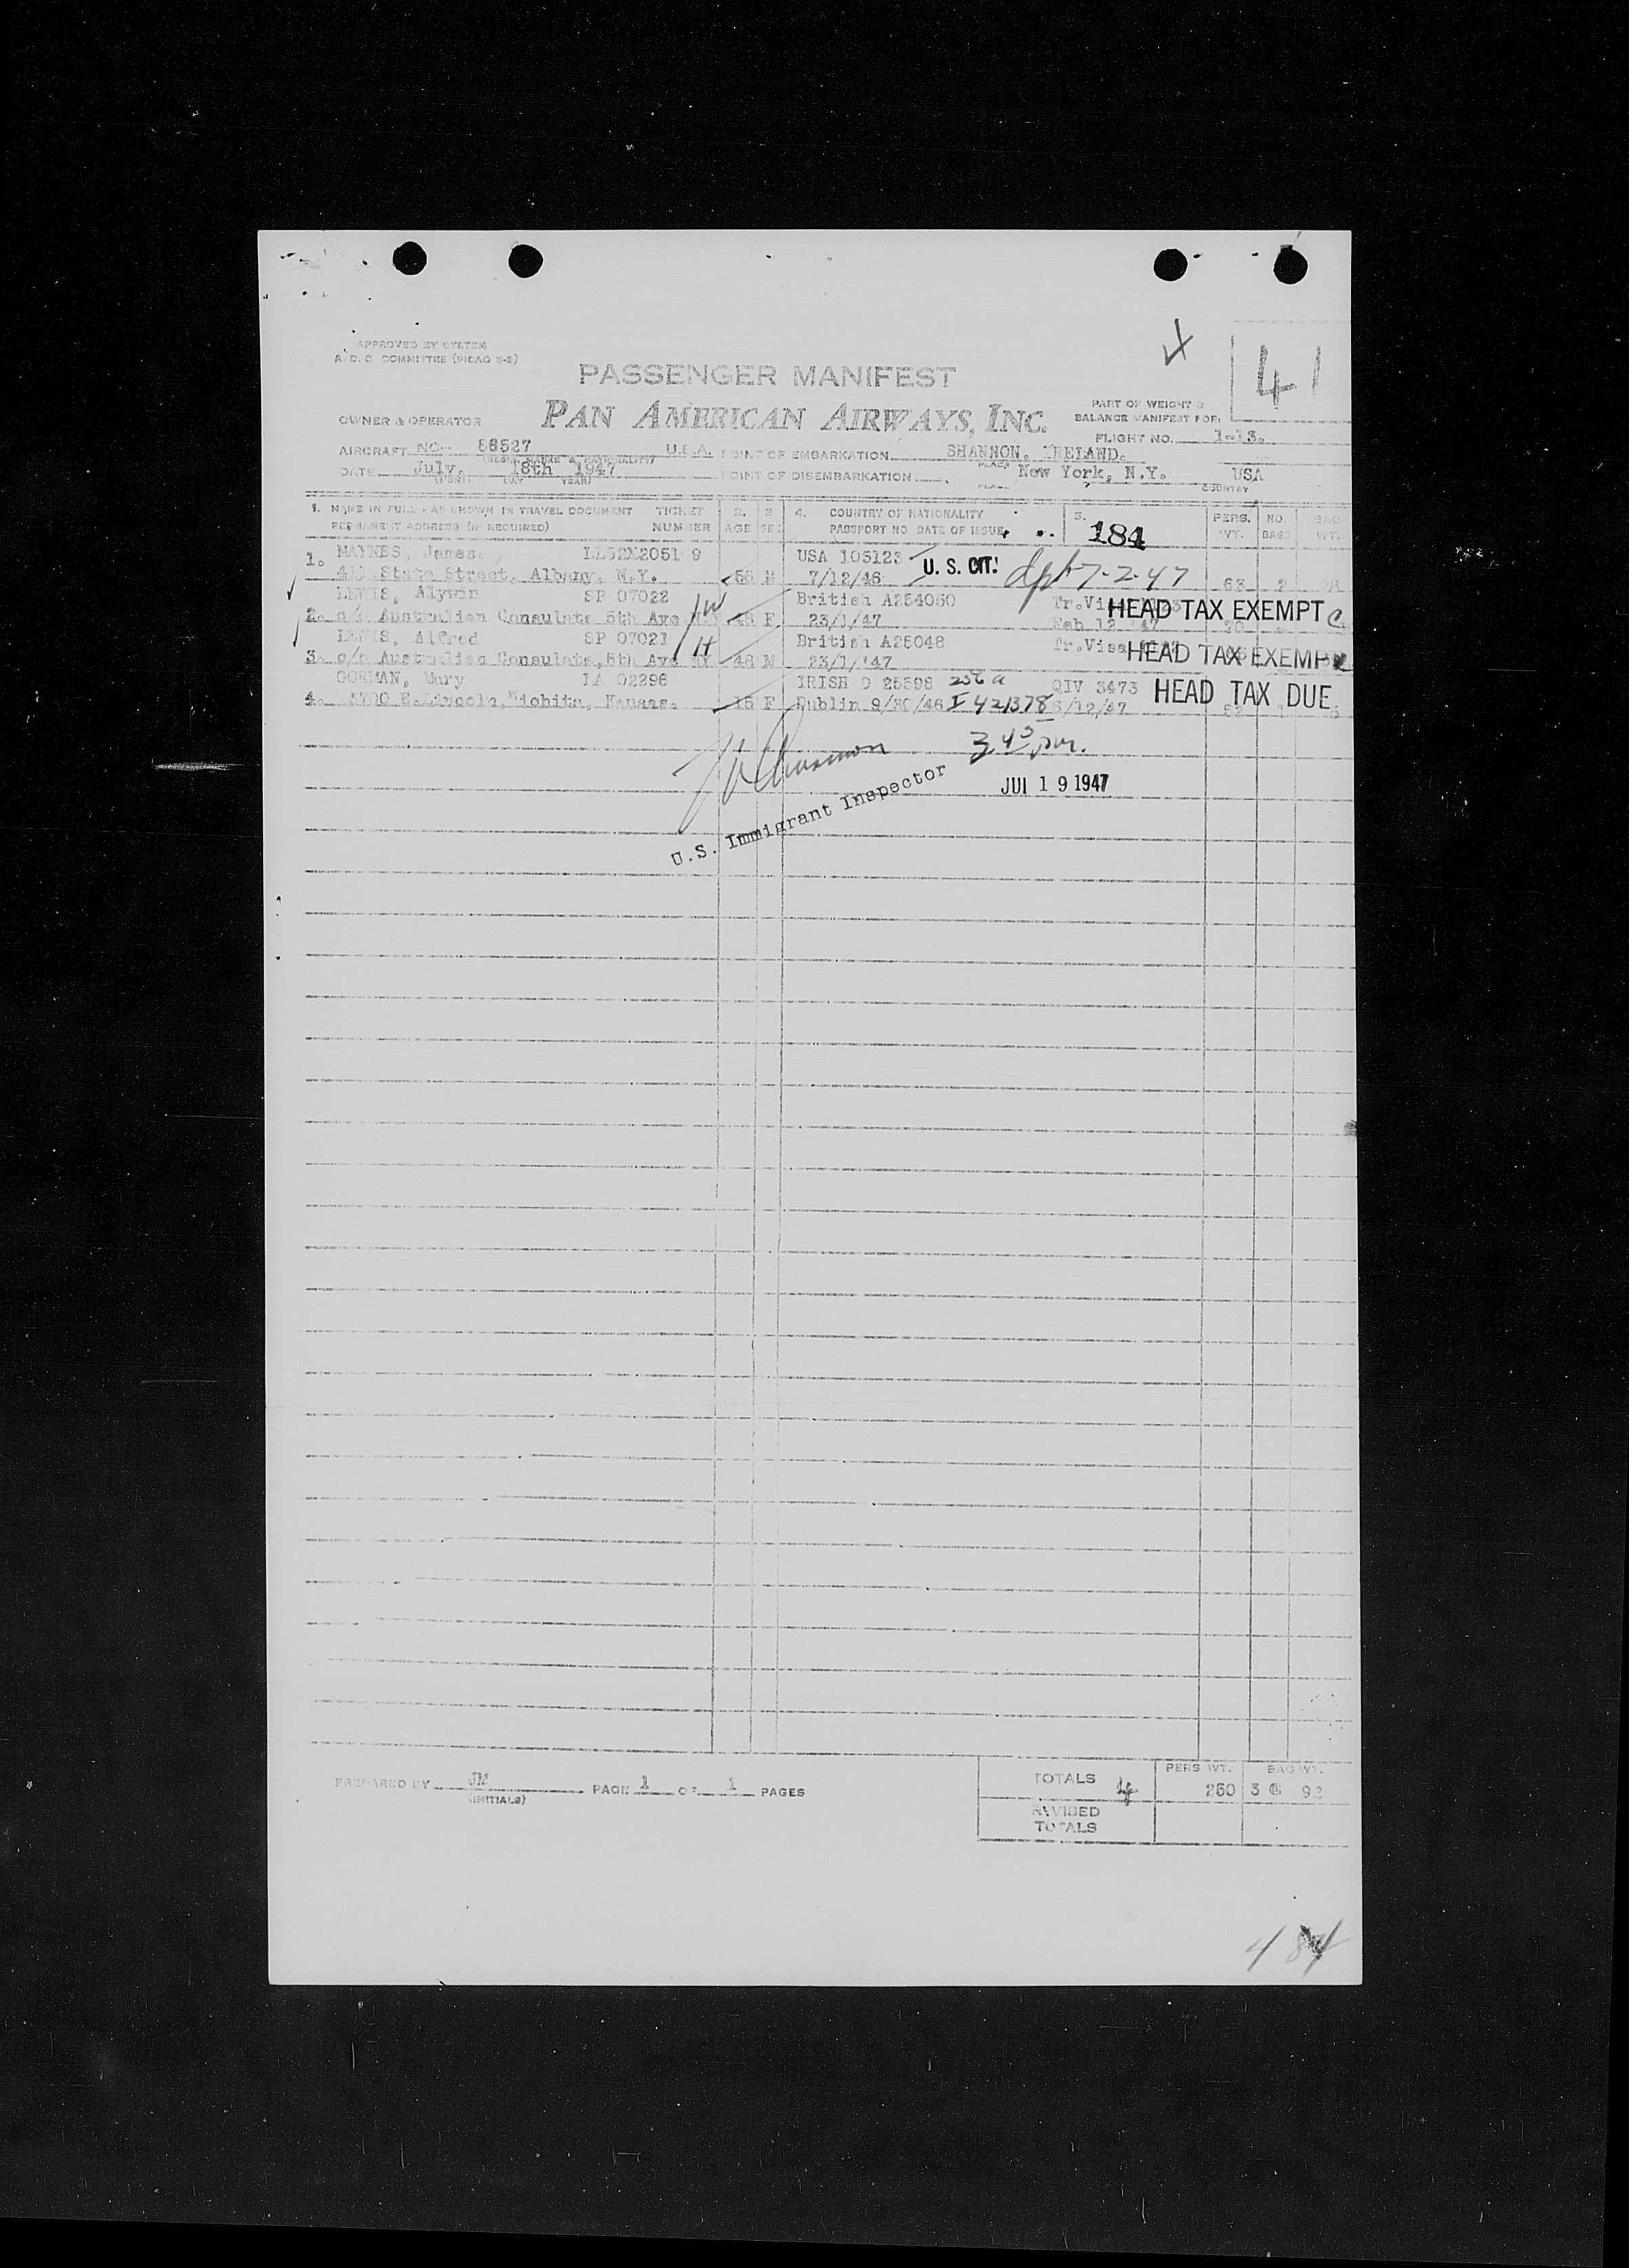 APPROVED BY SYSTEM
A. D. C. COMMITTEE (PICAO S-2)
4
41
PASSENGER MANIFEST
PAN AMERICAN AIRWAYS, INC.
OWNER & OPERATOR
PART OF WEIGHT &
BALANCE MANIFEST FOR:
FLIGHT NO. 1-13.
AIRCRAFT NC- 88527 U.S.A. POINT OF EMBARKATION SHANNON, IRELAND.
(REG. MARKS & NATIONALITY) PLACE
DATE July, 18th 1947 POINT OF DISEMBARKATION New York, N.Y. USA
(MONTH DAY YEAR) PLACE COUNTRY
1. NAME IN FULL - AS SHOWN IN TRAVEL DOCUMENT TICKET 2. 3 4. COUNTRY OF NATIONALITY 5. PERS. NO. BAG
PERMANENT ADDRESS (IF REQUIRED) NUMBER AGE SEX PASSPORT NO. DATE OF ISSUE 184 WT. BAGS WT.
MAYNES, James. USA 105123 U. S. CIT.
1. State Street, Albany, N.Y. 56 M 7/12/46 dpt 7-2-47 68 2
LEWIS, Alywin SP 07022 W British A254050 Tr.Visa HEAD TAX EXEMPT
2. c/o Australian Consulate 5th Ave NY F 23/1/47 Feb 12 47
LEWIS, Alfred SP 07021 H British A25048 Tr.Visa HEAD TAX EXEMPT
3. c/o Australian Consulate, 5th Ave NY 48 M 23/1/'47
GORMAN, Mary LA 02296 IRISH D 25598 QIV 3473 HEAD TAX DUE
4. E.Lincoln, Wichita, Kansas. 15 F Dublin 9/30/46 I 421378 6/12/47
3 45 pm.
U.S. Immigrant Inspector
JUL 19 1947
PREPARED BY JM PAGE 1 OF 1 PAGES
(INITIALS)
PERS. WT. BAG WT.
TOTALS 4 260 92
REVISED
TOTALS